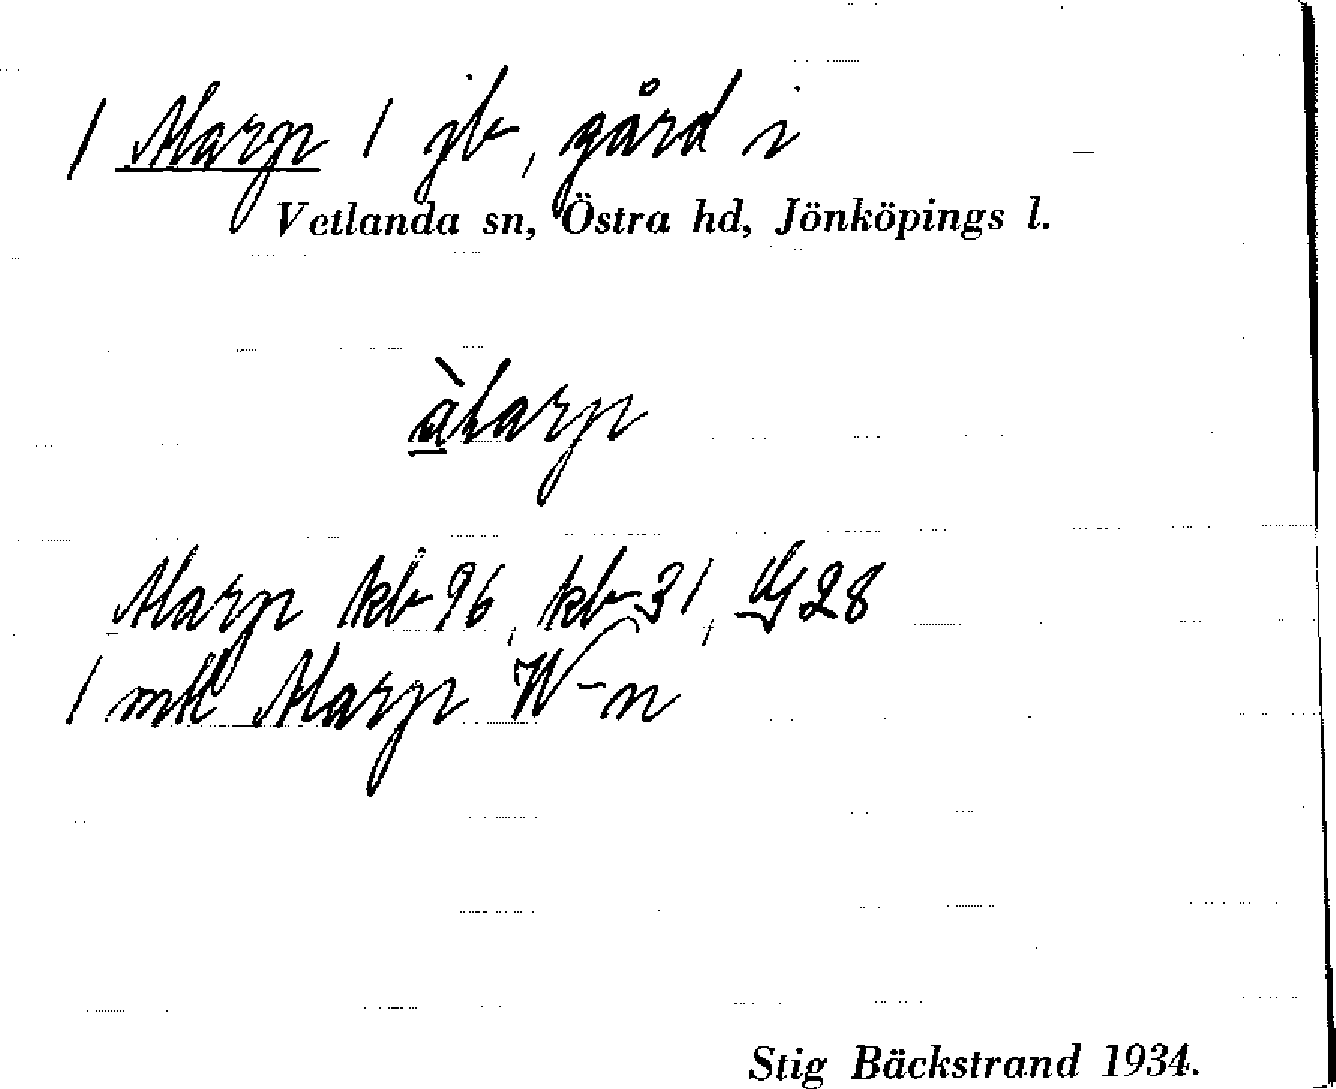 1 Alarp 1 jb, gård i
Vetlanda sn, Östra hd, Jönköpings l.
àlarp
Alarp kb 96, kb 31, G 28
1 mtl Alarp W-n
Stig Bäckstrand 1934.